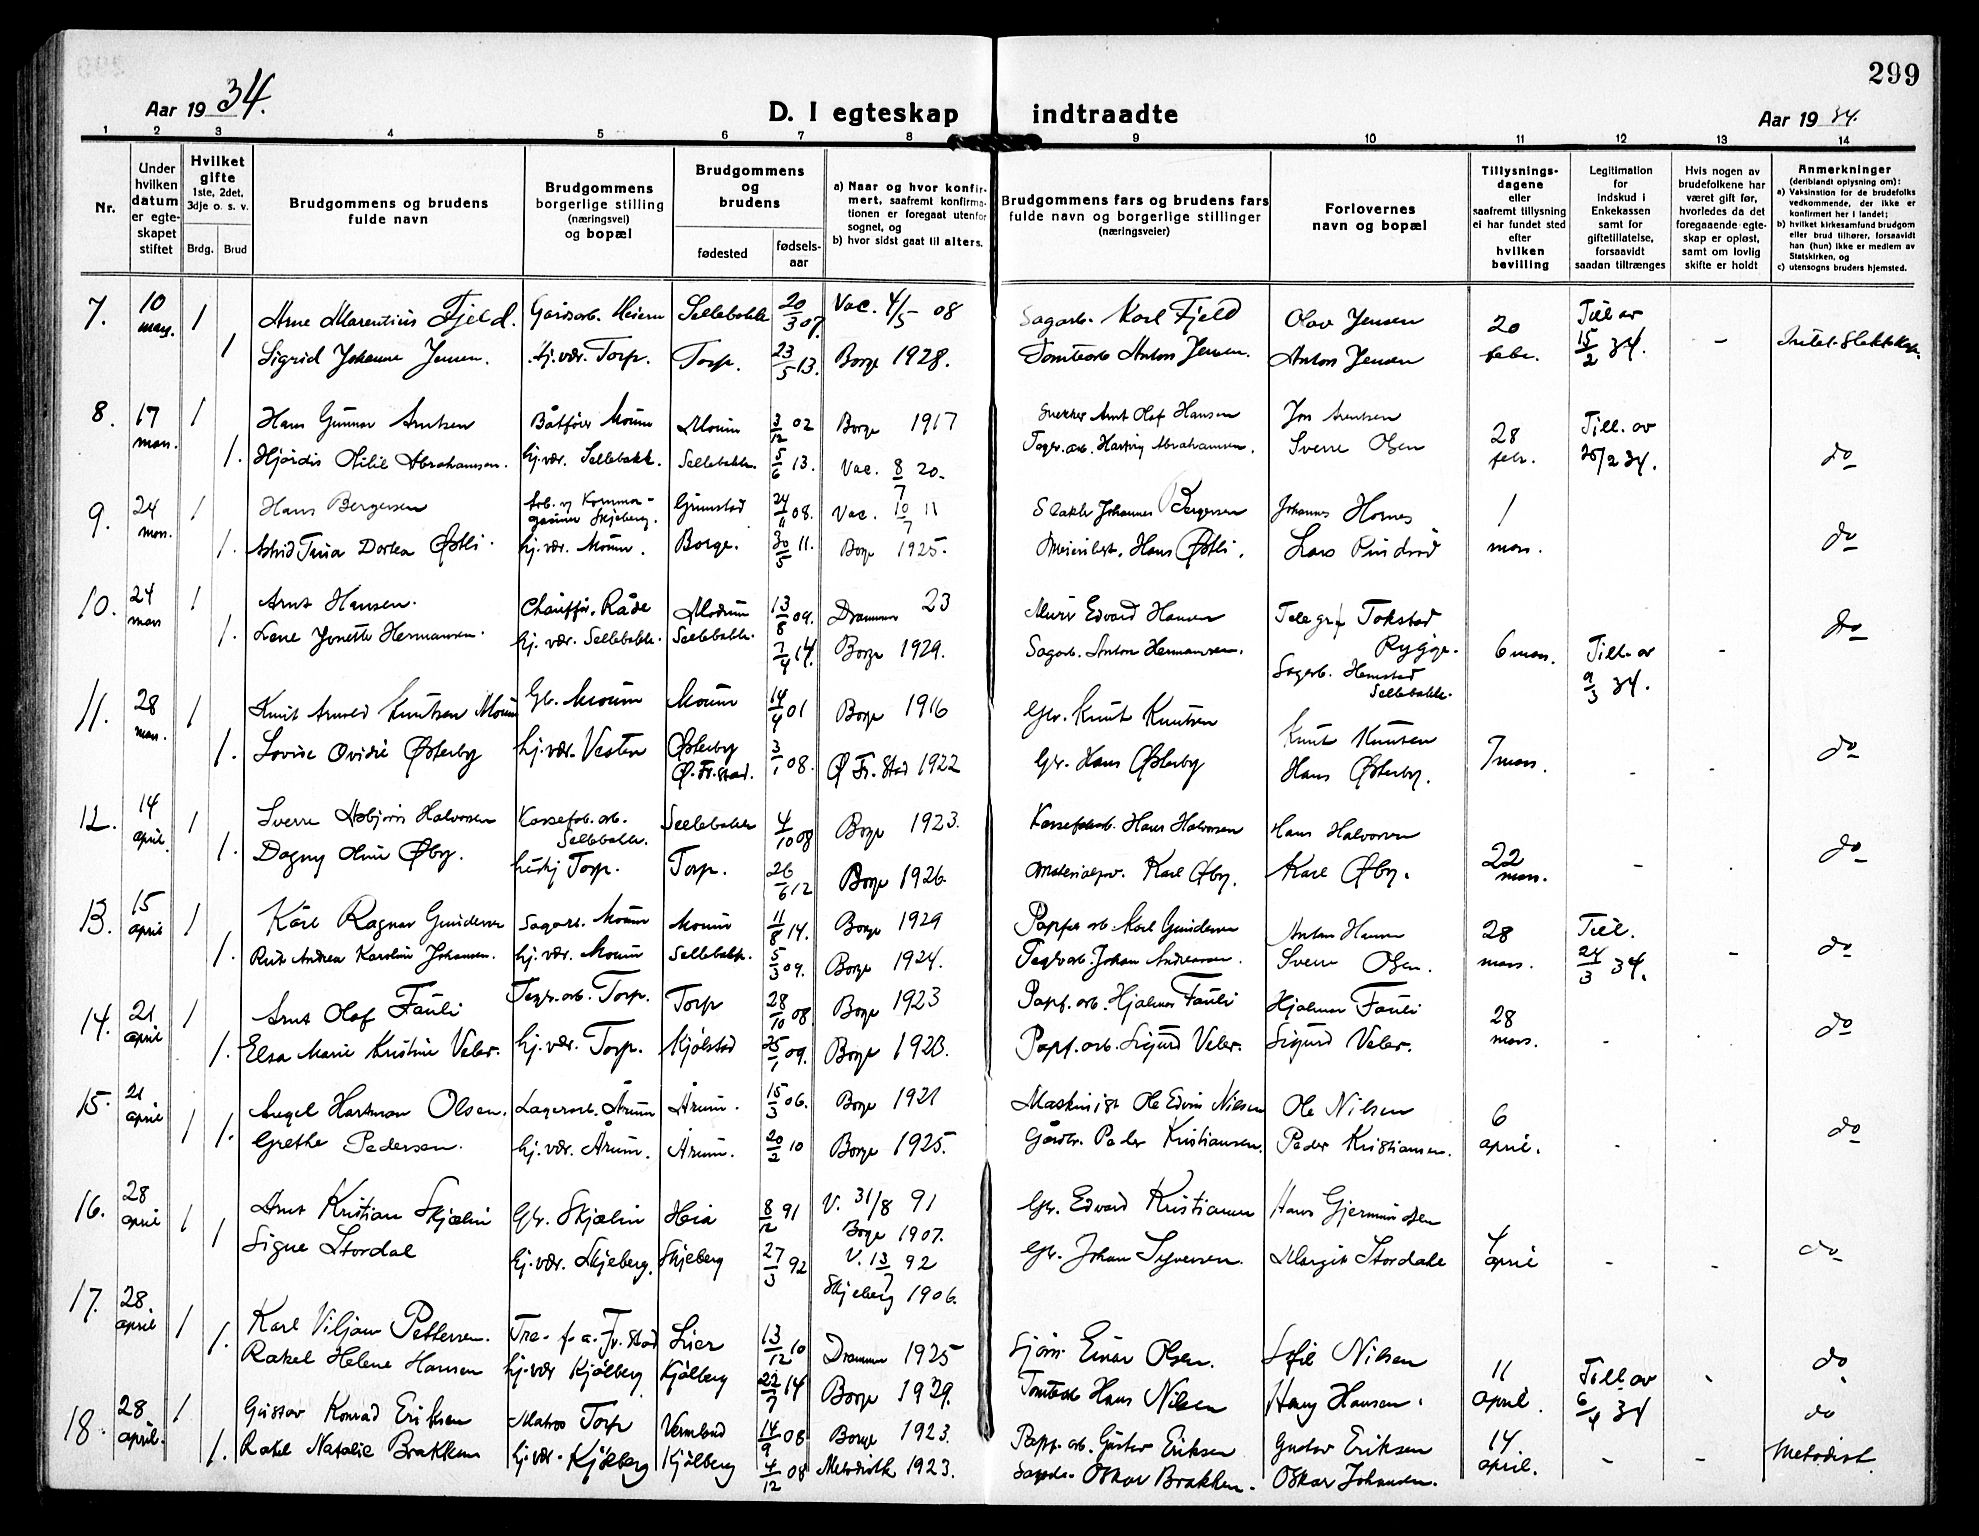 299
Aar 1934.
D. I egteskap indtraadte
Aar 1934.
1 2 3 4 5 6 7 8 9 10 11 12 13 14
Nr.
Under hvilken datum er egteskapet stiftet
Hvilket gifte
1ste, 2det, 3dje o. s. v.
Brdg. Brud
Brudgommens og brudens fulde navn
Brudgommens borgerlige stilling (næringsvei) og bopæl
Brudgommens og brudens
fødested
fødsels-aar
a) Naar og hvor konfirmert, saafremt konfirmationen er foregaat utenfor sognet, og
b) hvor sidst gaat til alters.
Brudgommens fars og brudens fars fulde navn og borgerlige stillinger (næringsveier)
Forlovernes navn og bopæl
Tillysningsdagene eller saafremt tillysning ei har fundet sted efter hvilken bevilling
Legitimation for indskud i Enkekassen samt for giftetillatelse, forsaavidt saadan tiltrænges
Hvis nogen av brudefolkene har været gift før, hvorledes da det foregaaende egteskap er opløst, samt om lovlig skifte er holdt
Anmerkninger
(deriblandt oplysning om):
a) Vaksination for de brudefolks vedkommende, der ikke er konfirmert her i landet;
b) hvilket kirkesamfund brudgom eller brud tilhører, forsaavidt han (hun) ikke er medlem av Statskirken, og
c) utensogns bruders hjemsted.
7. 10 mars. 1 Arne Marentius Fjeld. Sellebakk 20/3 07. Vac. 4/5 08 Sagarb. Karl Fjeld Olav Jensen 20 febr. Till av 15/2 34. -
1 Sigrid Johanne Jensen. hj. vær. Torp. Torp. 23/5 13. Borge 1928. Tomtearb Anton Jensen. Anton Jensen
8. 17 mars. 1 Hans Gunnar Arntsen Båtfører Moum Moum 3/12 02 Borge 1917 Snekker Arnt Olaf Hansen Jon Arentsen 28 febr. Till. av 25/2 34. do
1. Hjørdis Abrahamsen. hj. vær. Sellebakk. Sellebakk. 5/6 13. Vac. 8/7 20. Teglv. arb. Hartvig Abrahamsen. Sverre Olsen
9. 24 mars. 1 Hans Bergersen Skjeberg. Grimstad 24/11 08. Vac. 10/7 11 Slakter Johannes Bergersen Johannes Hornes 1 mars. do
1. Astrid Dortea Østli. hj. vær. Moum. Borge. 30/5 11. Borge 1925. Hans Østli. Lars
10. 24 mars 1 Arnt Hansen. Chauffør. Råde Modum 13/8 09. Drammen 23 Murer Edvard Hansen Telegraf Tokstad Rygge. 6 mars. Till. av 9/3 34. - do
1. Lene Jonette Hermansen. hj. vær. Sellebakk. Sellebakk. 7/4 14. Borge 1929. Sagarb. Anton Hermansen. Sagarb. Hemstad Sellebakk.
11. 28 mars. 1 Knut Arnold Knutsen Moum Gbr. Moum Moum 14/4 01 Borge 1916 Gbr. Knut Knutsen Knut Knutsen 7 mars. - - do
1. Lovise Ovidie Østerby hj. vær. Vesten Østerby Ø. Fr.stad. 3/1 08. Ø Fr. Stad 1922 Gbr. Hans Østerby Hans Østerby.
12. 14 april. 1 Sverre Asbjørn Halvorsen Kassefab. arb. Sellebakk. Sellebakk 4/10 08 Borge 1923. Kassefabarb. Hans Halvorsen Hans Halvorsen 22 mars. - do
1. Dagny Øby. hushj Torp. Torp. 26/6 12 Borge 1926. Materialforv. Karl Øby. Karl Øby.
13. 15 april 1 Kåre Ragnar Gundersen Sagarb. Moum Moum 11/8 14. Borge 1929 Papfab arb Karl Gundersen Anton Hansen 28 mars. Till. 24/3 34. - do
1. Rut Andrea Karoline Johansen. hj. vær. Moum Sellebakk. 5/3 09. Borge 1924. Teglv arb. Johan Andreassen. Sverre Olsen.
14. 21 april 1 Arnt Olaf Fauli Teglv. arb. Torp. Torp 28/10 08. Borge 1923 Papf. arb. Hjalmar Fauli Hjalmar Fauli 28 mars. - - do
1. Elsa Marie Kristine Veler. hj. vær. Torp. Kjølstad 25/1 09. Borge 1923. Papf. arb. Sigurd Veler. Sigurd Veler.
15. 21 april 1 Augel Hartman Olsen. Lagerarb. Årum Årum. 15/3 06. Borge 1921 Maskinist Ole Edvin Nilsen Ole Nilsen 6 april. - - do
1. Grethe Pedersen. hj. vær. Årum. Årum. 20/2 10 Borge 1925. Gårdbr. Peder Kristiansen. Peder Kristiansen.
16. 28 april 1 Arnt Kristian Skjælin Gbr. Skjælin Heia 8/12 91 V. 31/8 91 Borge 1907. Gbr. Edvard Kristiansen Hans Gjermundsen 4 april - - do
1 Signe Stordal hj. vær. Skjeberg. Skjeberg 27/3 92 V. 13/7 92 Skjeberg 1906. Gbr. Johan Syversen Margit Stordahl
17. 28. april 1 Karl Viljam Pettersen. Fr. stad Lier 13/12 10 Drammen 1925 Sjøm. Einar Olsen. Sofie Nilsen 11 april. Till. av 6/4 34 - do
1. Rakel Helene Hansen hj. vær Kjølberg Kjølberg 22/7 14 Borge 1929. Tomtearb Hans Nilsen Harry Hansen.
18. 28 april. 1 Gustav Konrad Eriksen Matros Torp Vermland 14/9 06 Borge 1923. Papf. arb. Gustav Eriksen Gustav Eriksen 14. april. - - do
1. Rakel Natalie Brakken hj. vær. Kjølberg Kjølberg 4/12 08 Metodistk 1923. Oskar Brakken. Oskar Johansen. Metodist.